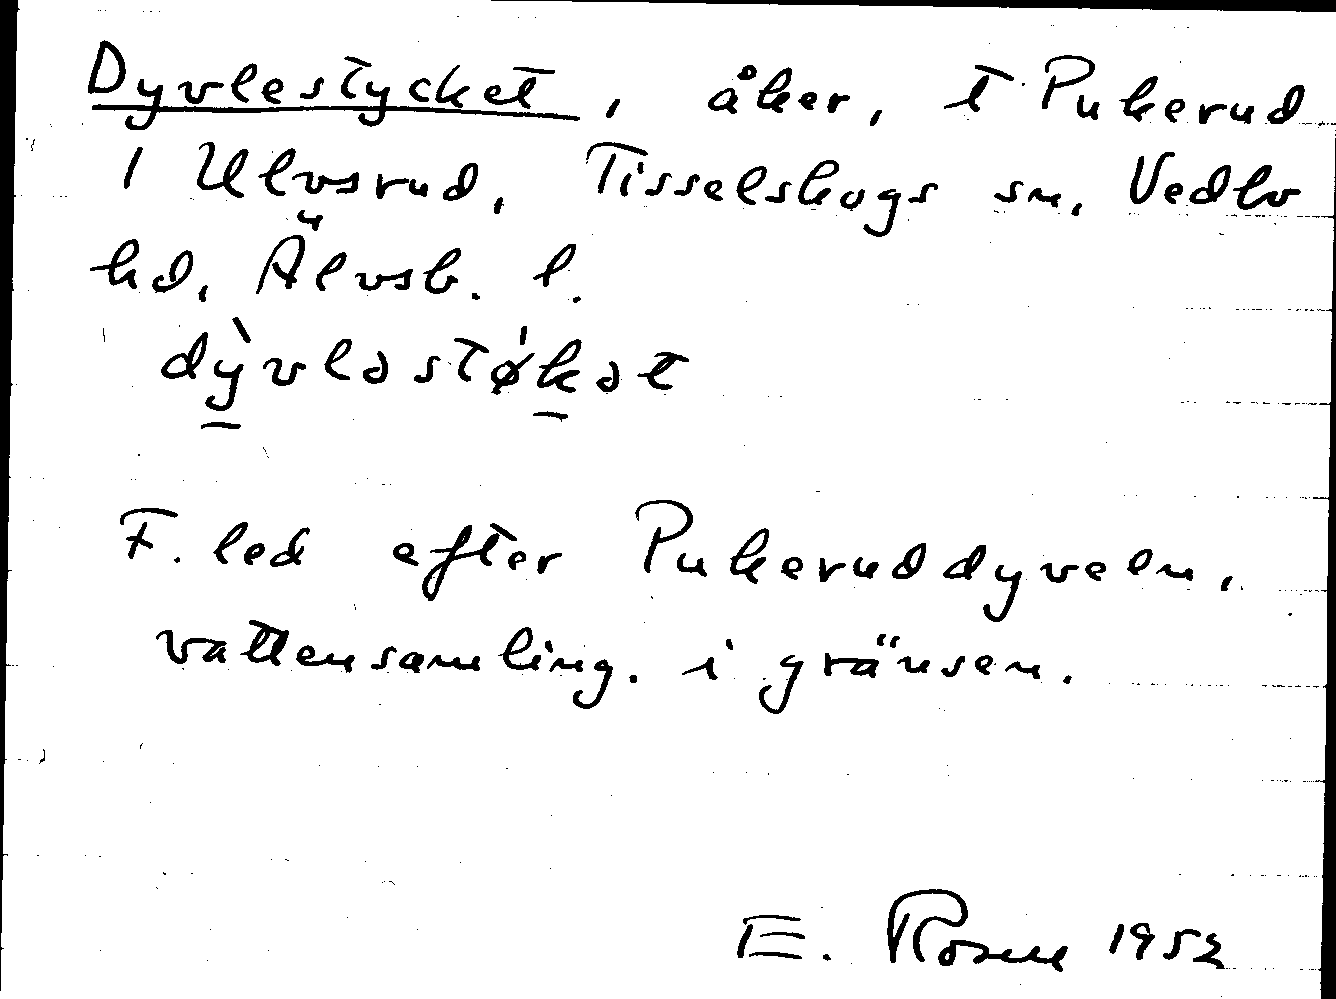 Dyvlestycket, åker, t Pukerud
1 Ulvsrud, Tisselskogs sn, Vedbo
hd, Älvsb. l.
dỳvləstǿkət
F. led efter Pukeruddyveln,
vattensamling. i gränsen.
E. Rosell 1952